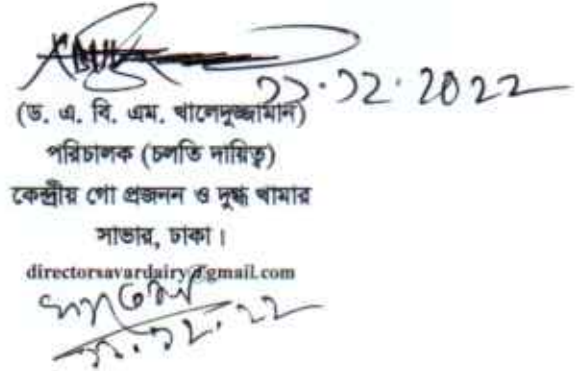 ১১.১২.2022
(ড. এ. বি. এম. খালেদুজ্জামান)
পরিচালক (চলতি দায়িত্ব)
কেন্দ্রীয় গো প্রজনন ও দুগ্ধ খামার
সাভার, ঢাকা।
directorsavardairy@gmail.com
১১.১২.২২